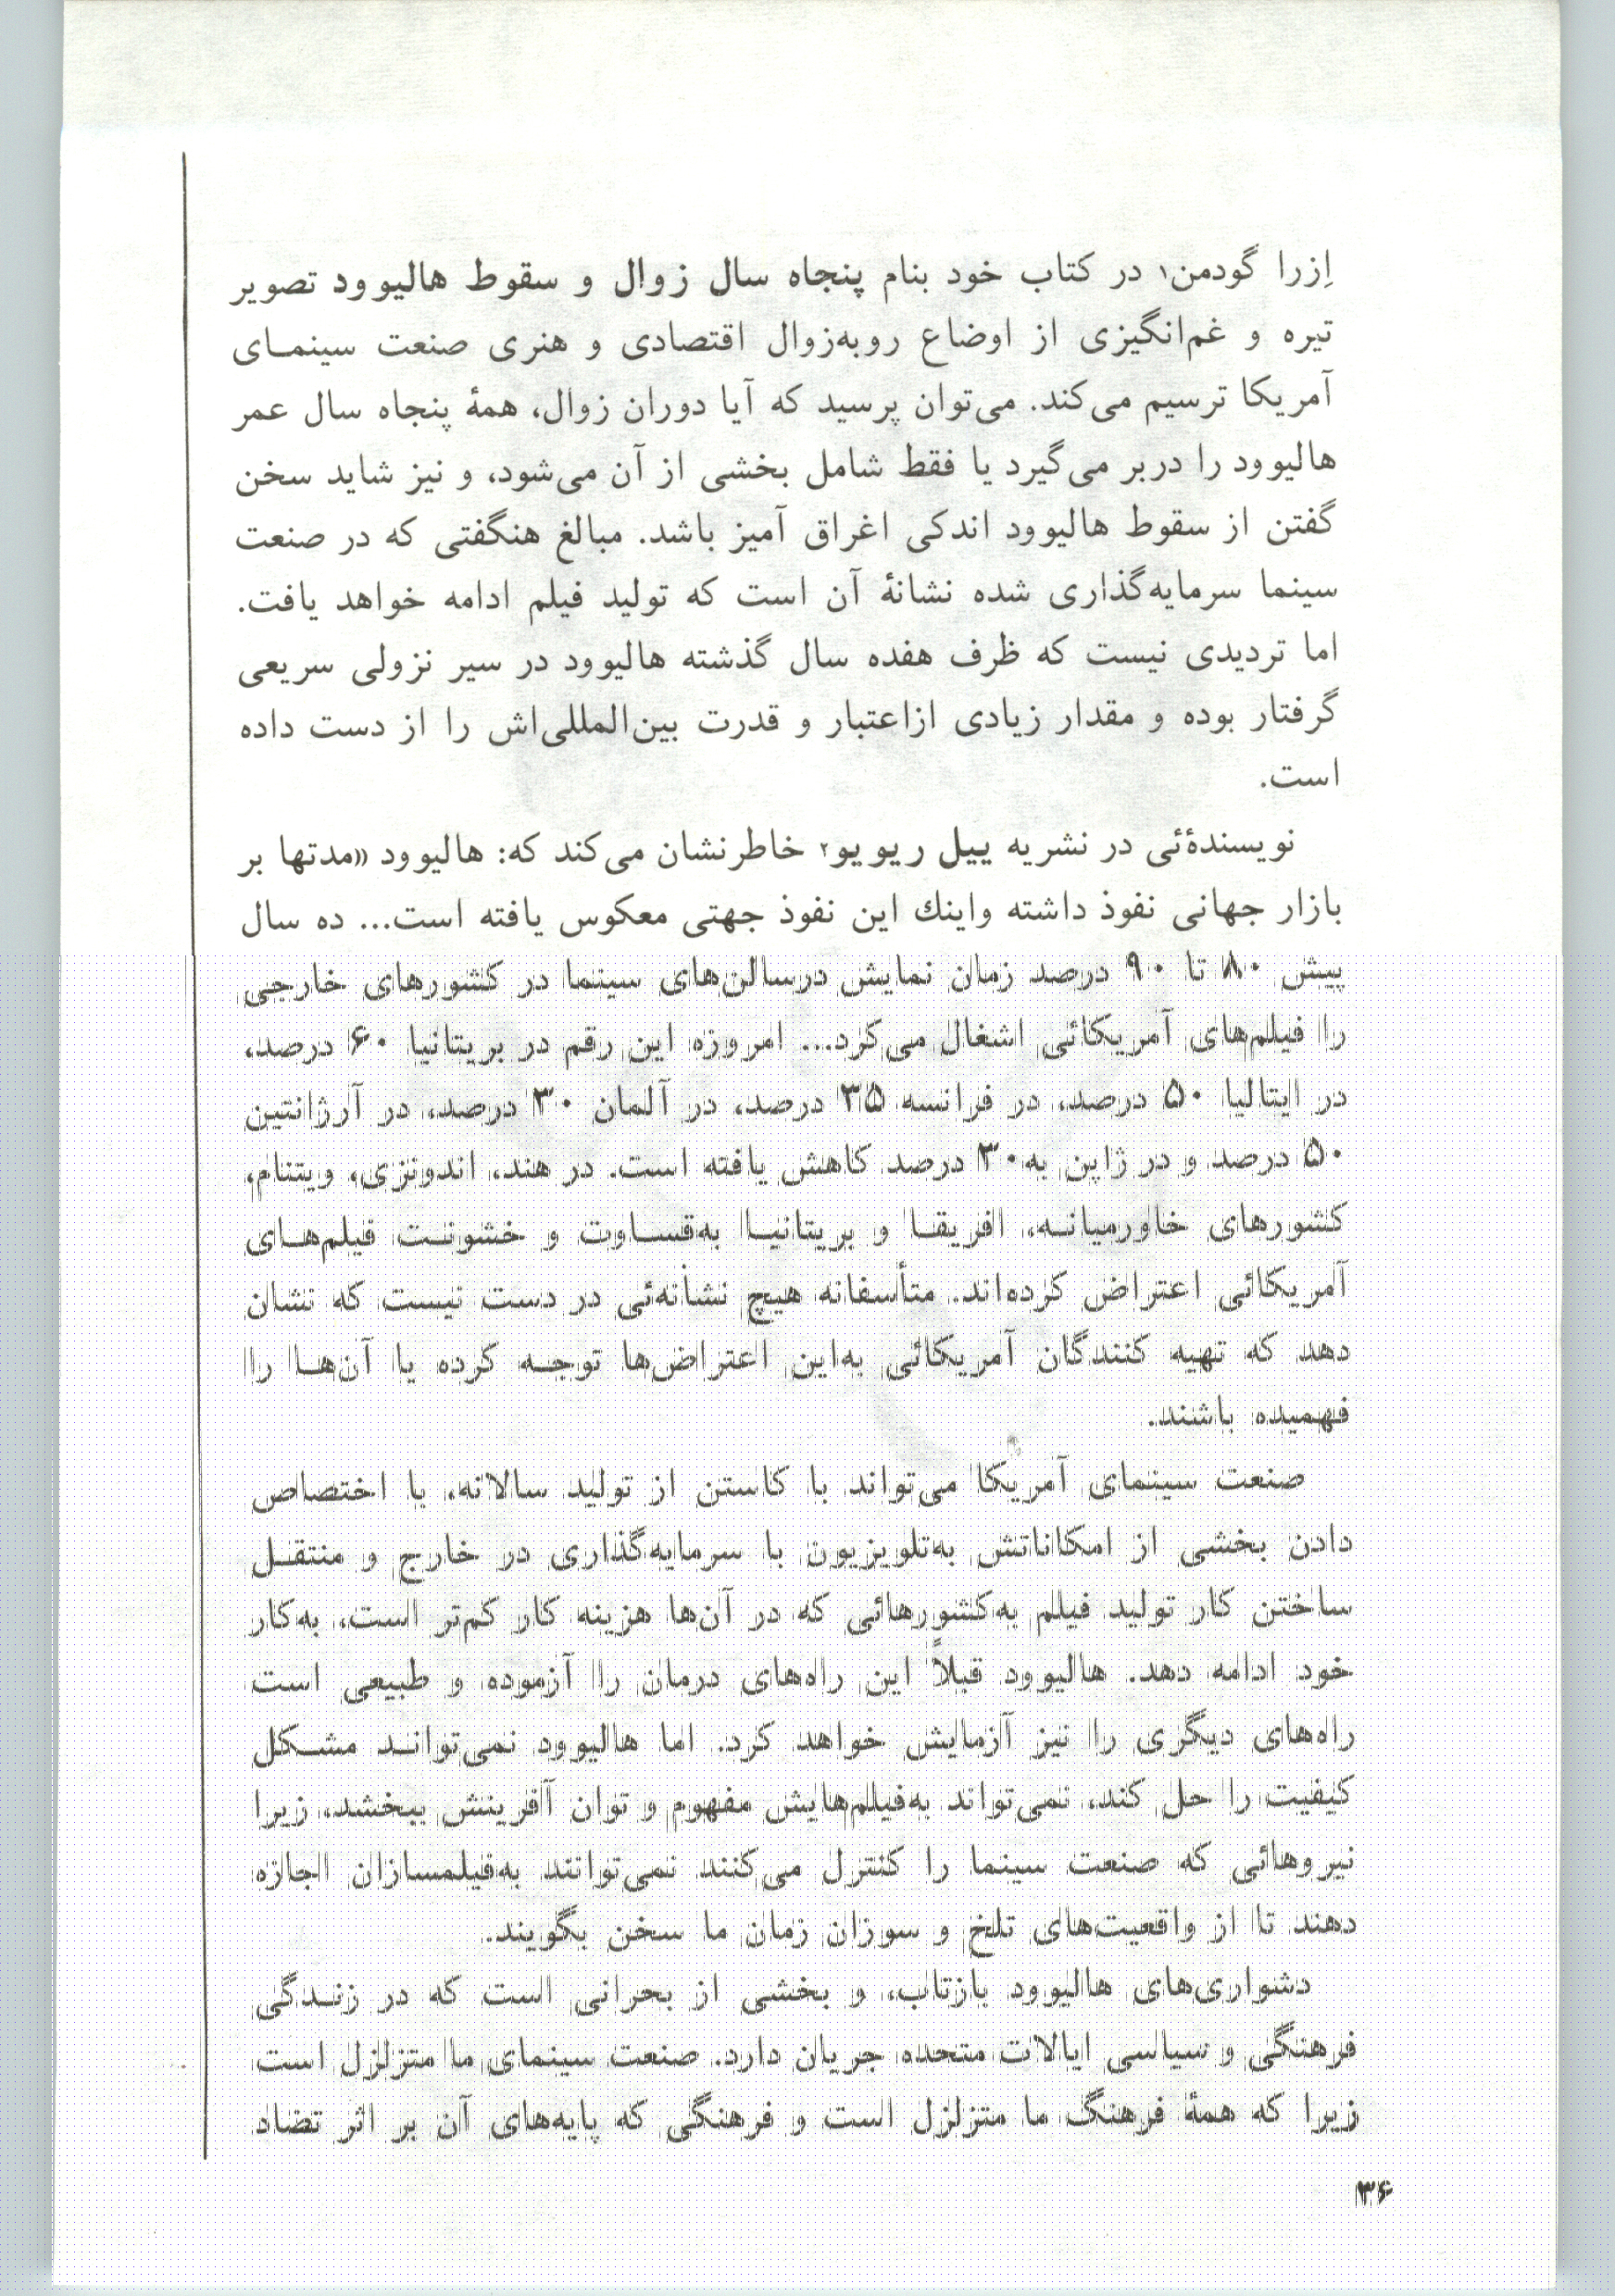 اِزرا گودمن۱ در کتاب خود بنام پنجاه سال زوال و سقوط هالیوود تصویر
تیره و غم‌انگیزی از اوضاع روبه‌زوال اقتصادی و هنری صنعت سینمـای
آمریکا ترسیم می‌کند. می‌توان پرسید که آیا دوران زوال، همهٔ پنجاه سال عمر
هالیوود را دربر می‌گیرد یا فقط شامل بخشی از آن می‌شود، و نیز شاید سخن
گفتن از سقوط هالیوود اندکی اغراق آمیز باشد. مبالغ هنگفتی که در صنعت
سینما سرمایه‌گذاری شده نشانهٔ آن است که تولید فیلم ادامه خواهد یافت.
اما تردیدی نیست که ظرف هفده سال گذشته هالیوود در سیر نزولی سریعی
گرفتار بوده و مقدار زیادی ازاعتبار و قدرت بین‌المللی‌اش را از دست داده
است.
نویسندهٔ‌ئی در نشریه ییل ریویو۲ خاطرنشان می‌کند که: هالیوود «مدتها بر
بازار جهانی نفوذ داشته واینك این نفوذ جهتی معکوس یافته است... ده سال
پیش ۸۰ تا ۹۰ درصد زمان نمایش درسالن‌های سینما در کشورهای خارجی
را فیلم‌های آمریکائی اشغال می‌کرد... امروزه این رقم در بریتانیا ۶۰ درصد،
در ایتالیا ۵۰ درصد، در فرانسه ۳۵ درصد، در آلمان ۳۰ درصد، در آرژانتین
۵۰ درصد و در ژاپن به۳۰ درصد کاهش یافته است. در هند، اندونزی، ویتنام،
کشورهای خاورمیانـه، افریقـا و بریتانیـا به‌قسـاوت و خشونـت فیلم‌هـای
آمریکائی اعتراض کرده‌اند. متأسفانه هیچ نشانه‌ئی در دست نیست که نشان
دهد که تهیه کنندگان آمریکائی به‌این اعتراض‌ها توجـه کرده یا آن‌هـا را
فهمیده باشند.
صنعت سینمای آمریکا می‌تواند با کاستن از تولید سالانه، با اختصاص
دادن بخشی از امکاناتش به‌تلویزیون با سرمایه‌گذاری در خارج و منتقـل
ساختن کار تولید فیلم به‌کشورهائی که در آن‌ها هزینه کار کم‌تر است، به‌کار
خود ادامه دهد. هالیوود قبلاً این راه‌های درمان را آزموده و طبیعی است
راه‌های دیگری را نیز آزمایش خواهد کرد. اما هالیوود نمی‌توانـد مشـکل
کیفیت را حل کند، نمی‌تواند به‌فیلم‌هایش مفهوم و توان آفرینش ببخشد، زیرا
نیروهائی که صنعت سینما را کنترل می‌کنند نمی‌توانند به‌فیلمسازان اجازه
دهند تا از واقعیت‌های تلخ و سوزان زمان ما سخن بگویند.
دشواری‌های هالیوود بازتاب، و بخشی از بحرانی است که در زنـدگی
فرهنگی و سیاسی ایالات متحده جریان دارد. صنعت سینمای ما متزلزل است
زیرا که همهٔ فرهنگ ما متزلزل است و فرهنگی که پایه‌های آن بر اثر تضاد
۳۶